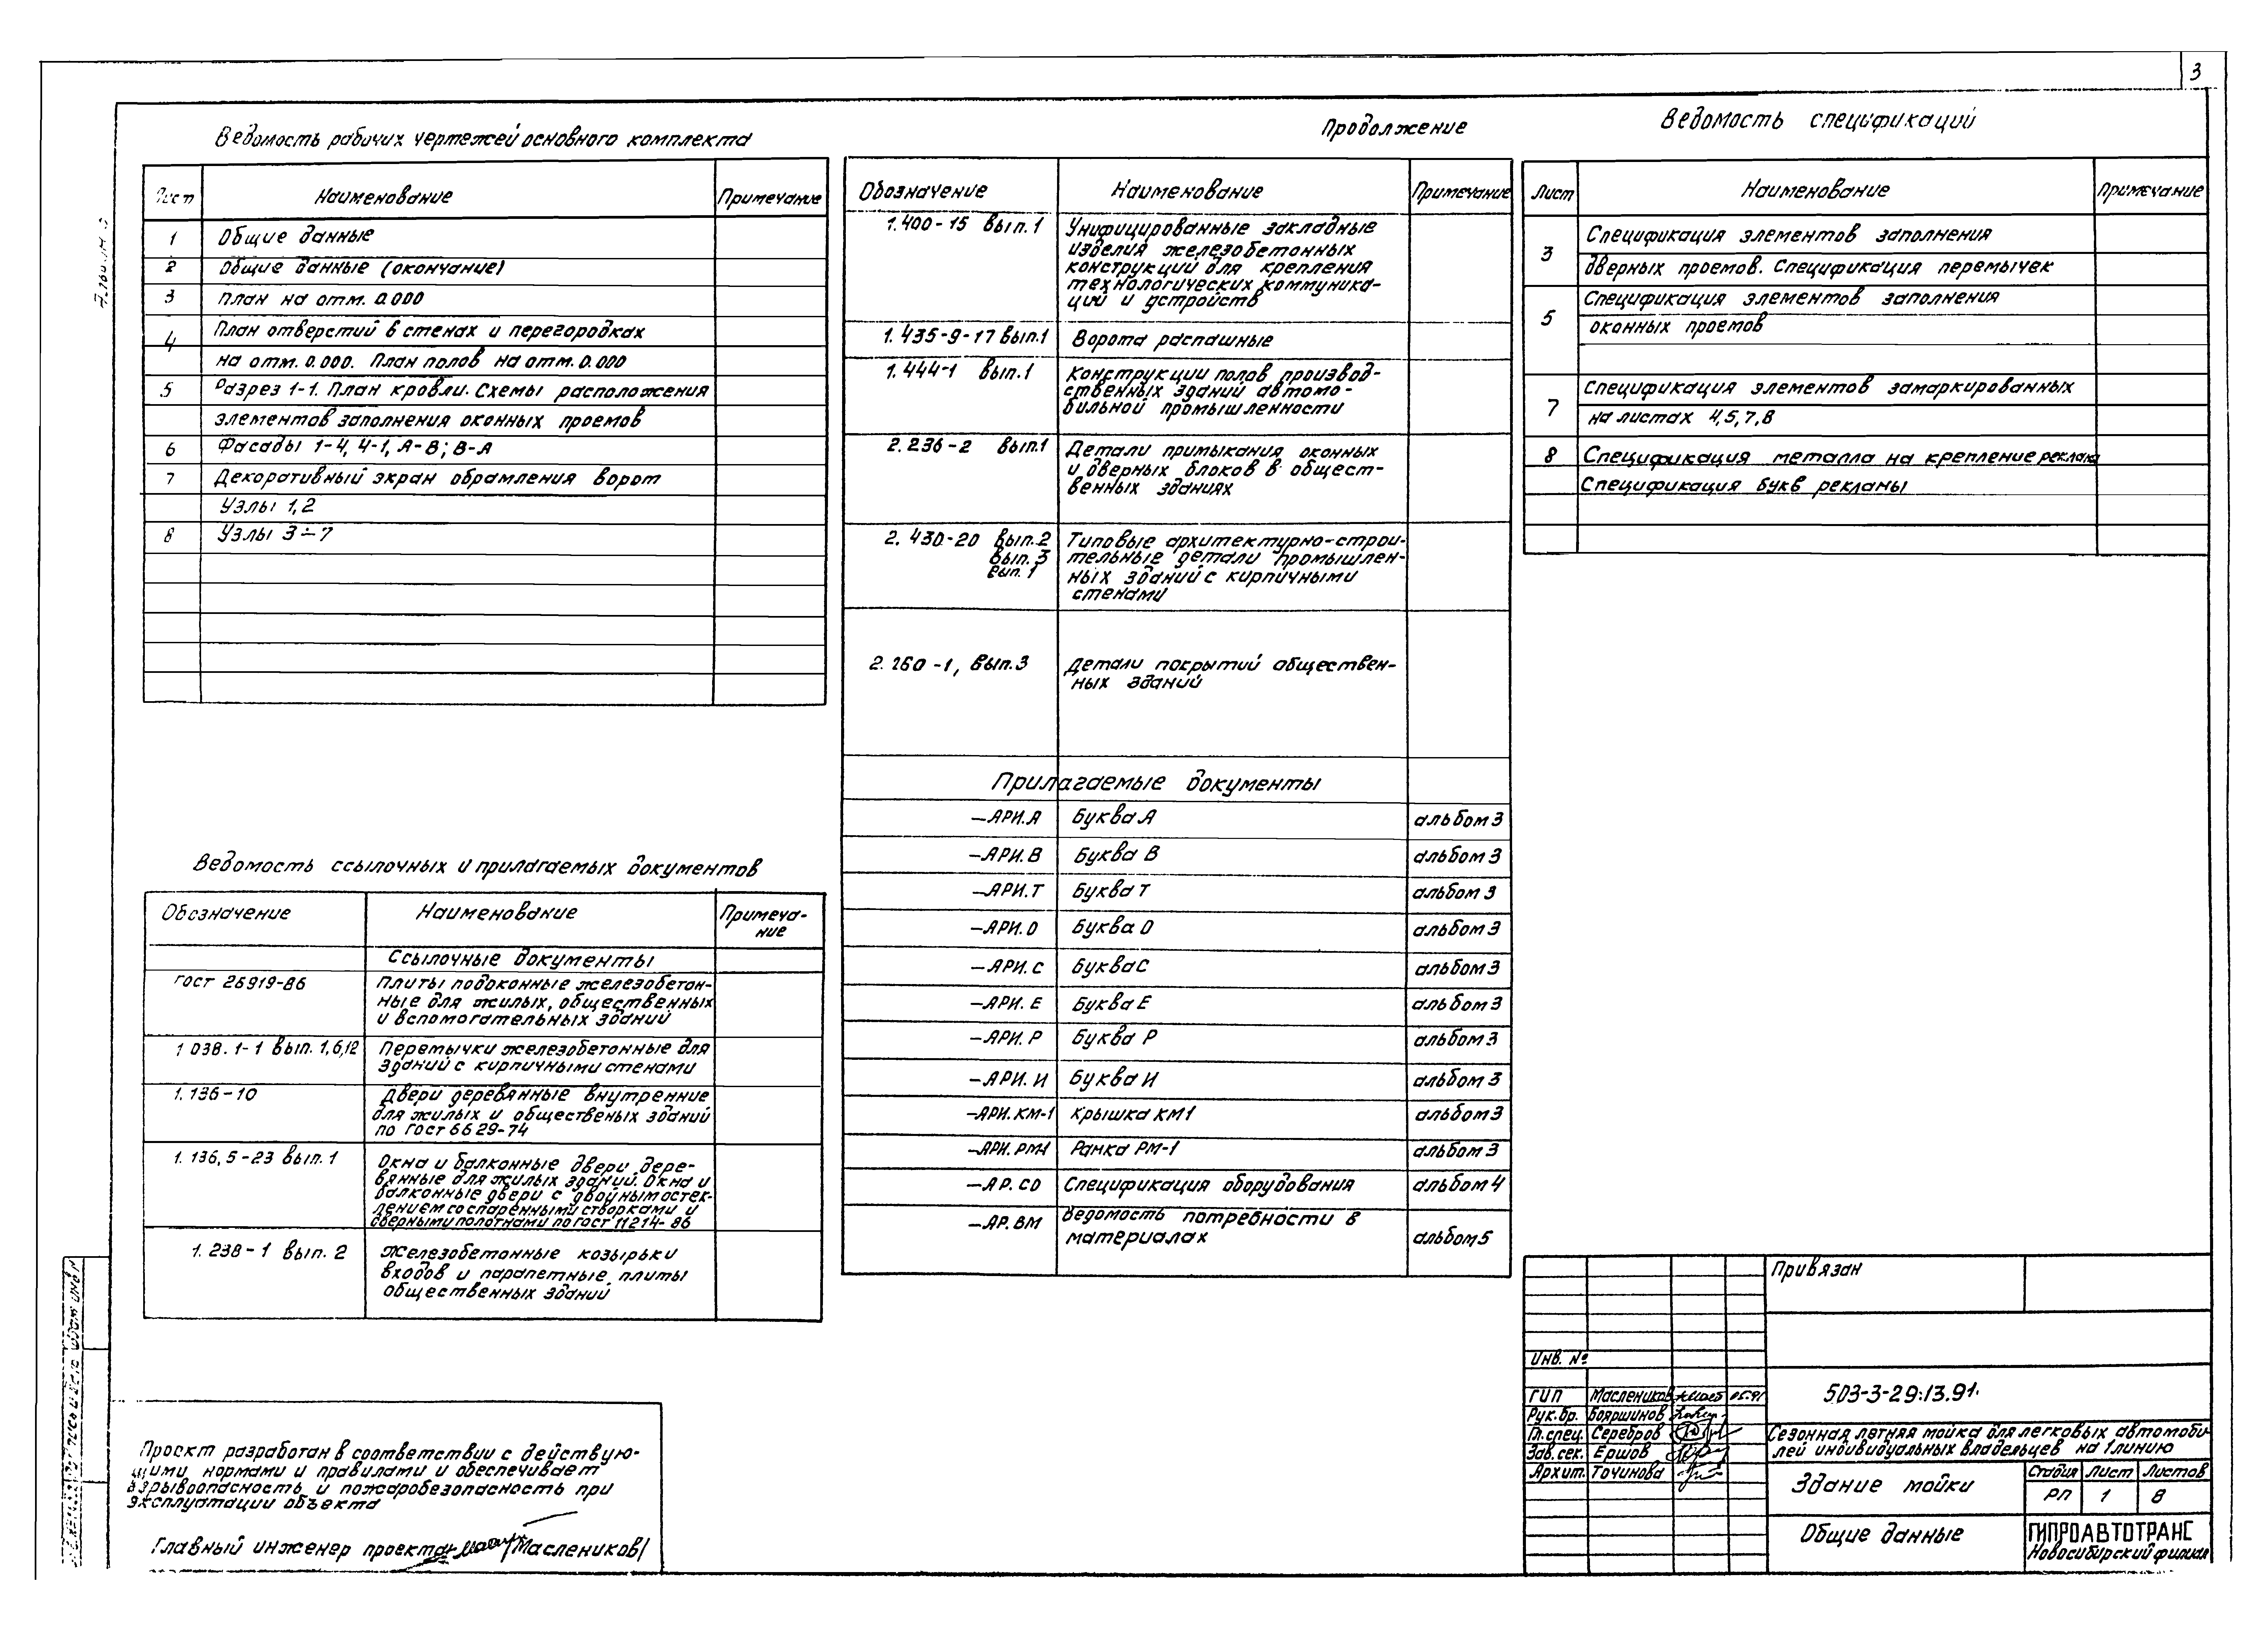 3
Ведомость рабочих чертежей основного комплекта
Лист Наименование Примечание
1 Общие данные
2 Общие данные (окончание)
3 План на отм. 0.000
4 План отверстий в стенах и перегородках
на отм. 0.000. План полов на отм. 0.000
5 Разрез 1-1. План кровли. Схемы расположения
элементов заполнения оконных проемов
6 Фасады 1-4, 4-1, А-В; В-А
7 Декоративный экран обрамления ворот
Узлы 1,2
8 Узлы 3÷7
Ведомость ссылочных и прилагаемых документов
Обозначение Наименование Примеча-
ние
Ссылочные документы
ГОСТ 26919-86 Плиты подоконные железобетон-
ные для жилых, общественных
и вспомогательных зданий
1 038.1-1 вып. 1,6,12 Перемычки железобетонные для
зданий с кирпичными стенами
1.136-10 Двери деревянные внутренние
для жилых и общественых зданий
по ГОСТ 6629-74
1.136,5-23 вып.1 Окна и балконные двери дере-
вянные для жилых зданий. Окна и
балконные двери с двойным остек-
лением со спаренными створками и
дверными полотнами по ГОСТ 11214-86
1.238-1 вып. 2 Железобетонные козырьки
входов и парапетные плиты
общественных зданий
Проект разработан в соответствии с действую-
щими нормами и правилами и обеспечивает
взрывоопасность и пожаробезопасность при
эксплуатации объекта
Главный инженер проекта /Маслеников/
Продолжение
Обозначение Наименование Примечание
1.400-15 вып.1 Унифицированные закладные
изделия железобетонных
конструкций для крепления
технологических коммуника-
ций и устройств
1.435-9-17 вып.1 Ворота распашные
1.444-1 вып.1 Конструкции полов производ-
ственных зданий автомо-
бильной промышленности
2.236-2 вып.1 Детали примыкания оконных
и дверных блоков в общест-
венных зданиях
2.430-20 вып.2 Типовые архитектурно-строи-
вып.3 тельные детали промышлен-
вып.1 ных зданий с кирпичными
стенами
2.260-1, вып.3 Детали покрытий обществен-
ных зданий
Прилагаемые документы
-АРИ.А Буква А альбом 3
-АРИ.В Буква В альбом 3
-АРИ.Т Буква Т альбом 3
-АРИ.О Буква О альбом 3
-АРИ.С Буква С альбом 3
-АРИ.Е Буква Е альбом 3
-АРИ.Р Буква Р альбом 3
-АРИ.И Буква И альбом 3
-АРИ.КМ-1 Крышка КМ1 альбом 3
-АРИ.РМ-1 Рамка РМ-1 альбом 3
-АР.СО Спецификация оборудования альбом 4
-АР.ВМ Ведомость потребности в
материалах альбом 5
Ведомость спецификаций
Лист Наименование Примечание
3 Спецификация элементов заполнения
дверных проемов. Спецификация перемычек
5 Спецификация элементов заполнения
оконных проемов
7 Спецификация элементов замаркированных
на листах 4,5,7,8
8 Спецификация металла на крепление рекламы
Спецификация букв рекламы
Привязан
Инв. №
ГИП Маслеников 05.91
Рук.бр. Бояршинов
Гл.спец. Серебров
Зав.сек. Ершов
Архит. Точинова
503-3-29.13.91.
Сезонная летняя мойка для легковых автомоби-
лей индивидуальных владельцев на 1 линию
Здание мойки
Стадия Лист Листов
РП 1 8
Общие данные
ГИПРОАВТОТРАНС
Новосибирский филиал